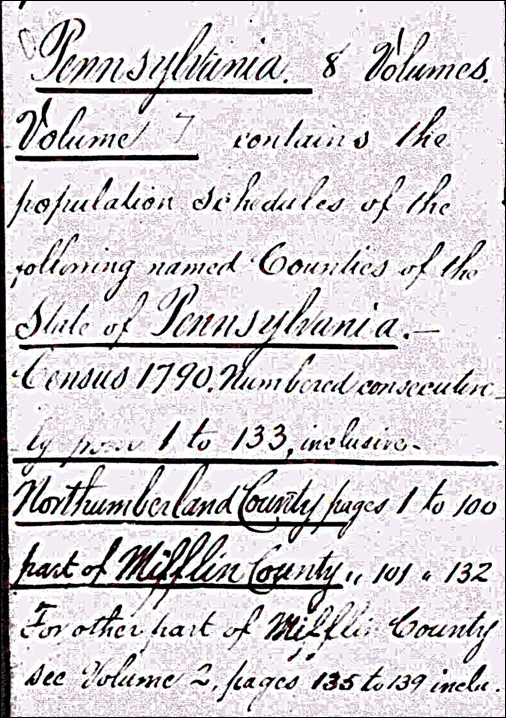 Pennsylvania. 8 Volumes.
Volume 7 contains the
population schedules of the
following named Counties of the
State of Pennsylvania.—
Census 1790. Numbered consecutive-
ly from 1 to 133, inclusive.
Northumberland County pages 1 to 100
part of Mifflin County „ 101 „ 132
For other part of Mifflin County
see Volume 2, pages 135 to 139 inclu.